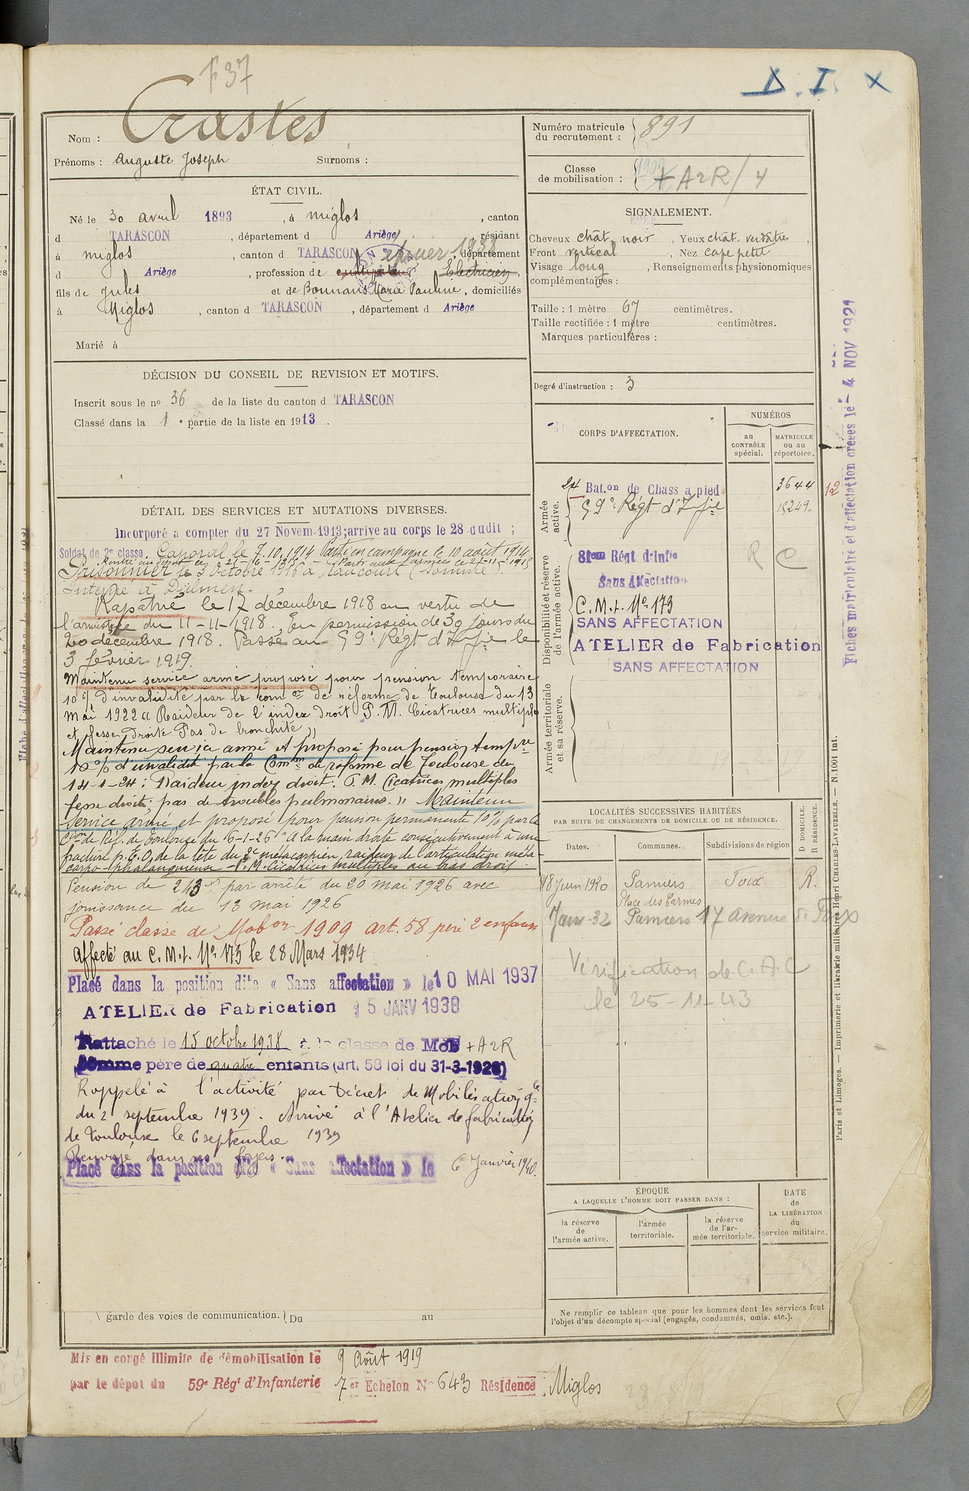 137
D. I. X
Nom : Crastes
Prénoms : Auguste Joseph Surnoms :
ÉTAT CIVIL.
Né le 30 avril 1893, à Miglos, canton
d TARASCON, département d Ariège, résidant
à Miglos, canton d TARASCON, département
d Ariège, profession de cultivateur Electricien,
fils de Jules et de Bonnans Marie Pauline, domiciliés
à Miglos, canton d TARASCON, département d Ariège
Marié à
DÉCISION DU CONSEIL DE REVISION ET MOTIFS.
Inscrit sous le no 36 de la liste du canton d TARASCON
Classé dans la 1e partie de la liste en 1913.
DÉTAIL DES SERVICES ET MUTATIONS DIVERSES.
Incorporé à compter du 27 Novem. 1913; arrivé au corps le 28 dudit ;
Soldat de 2e classe. Caporal le 7.10.1914 Parti en campagne le 10 août 1914
Prisonnier le 3 Octobre 1918 à (Somme)
Interné à
Rapatrié le 17 décembre 1918 en vertu de
l'armistice du 11-11-1918. En permission de 30 jours du
20 décembre 1918. Passé au 59e Régt d'Infie le
3 février 1919.
Maintenu service armé proposé pour pension temporaire
10% d'invalidité par la Comon de réforme de Toulouse du 13
mai 1922 "Raideur de l'index droit P. M. Cicatrices multiples
et fesse droite Pas de bronchite"
Maintenu service armé et proposé pour pension tempre
10% d'invalidité par la Comon de réforme de Toulouse du
14-1-24 : Raideur index droit. P. M. Cicatrices multiples
fesse droite. pas de troubles pulmonaires. " Maintenu
service armé et proposé pour pension permanente 10% par la
Con de Réf. de Toulouse du 6-1-26 " à la main droite consécutivement à une
fracture p. G. O. de la tête du 2e métacarpien, raideur de l'articulation méta
carpo-phalangienne - P. M. Cicatrices multiples au bras droit
Pension de 243 f par arrêté du 20 mai 1926 avec
jouissance du 13 mai 1926
Passé classe de Mobon 1909 art. 58 père 2 enfants
Affecté au C. M. I. No 173 le 28 Mars 1934
Placé dans la position dite « Sans affectation » le 10 MAI 1937
ATELIER de Fabrication 15 JANV 1938
Rattaché le 15 octobre 1938 à la classe de Mob + A2R
comme père de quatre enfants (art. 58 loi du 31-3-1928)
Rappelé à l'activité par Décret de Mobilisation gle
du 2 septembre 1939. Arrivé à l'Atelier de fabrication
de Toulouse le 6 septembre 1939
Renvoyé dans ses foyers.
Placé dans la position dite « Sans affectation » le 6 Janvier 1940.
garde des voies de communication. Du au
Mis en congé illimité de démobilisation le 9 Août 1919
par le dépôt du 59e Régt d'Infanterie 7er Echelon No 643 Résidence Miglos
Numéro matricule du recrutement : 891
Classe de mobilisation : + A2R/4
SIGNALEMENT.
Cheveux chât. noir, Yeux chât. verdâtre,
Front vertical, Nez cave petit
Visage long, Renseignements physionomiques
complémentaires :
Taille : 1 mètre 67 centimètres.
Taille rectifiée : 1 mètre centimètres.
Marques particulières :
Degré d'instruction : 3
CORPS D'AFFECTATION.
NUMÉROS
au CONTRÔLE spécial.
MATRICULE ou au répertoire.
Armée active.
24 Bat.on de Chass à pied 3644
59e Régt d'Infie 15249
Disponibilité et réserve de l'armée active.
81eme Régt d'Infie R C
Sans Affectation
C.M.I. No 173
SANS AFFECTATION
ATELIER de Fabrication
SANS AFFECTATION
Armée territoriale et sa réserve.
LOCALITÉS SUCCESSIVES HABITÉES
PAR SUITE DE CHANGEMENTS DE DOMICILE OU DE RÉSIDENCE.
Dates. Communes. Subdivisions de région
D DOMICILE. R RÉSIDENCE.
18 juin 1920 Pamiers Foix R.
Place des Carmes
Janv 32 Pamiers 17 avenue de Foix
Vérification de C.A.C
le 25-11-43
ÉPOQUE
A LAQUELLE L'HOMME DOIT PASSER DANS :
la réserve de l'armée active.
l'armée territoriale.
la réserve de l'armée territoriale.
DATE de LA LIBÉRATION du service militaire.
Ne remplir ce tableau que pour les hommes dont les services font
l'objet d'un décompte spécial (engagés, condamnés, omis, etc.).
Fiches matriculaire et d'affectation créées le - 4 NOV 1921
12
Paris et Limoges. — Imprimerie et librairie militaires Henri CHARLES-LAVAUZELLE. — N. 1001 Int.